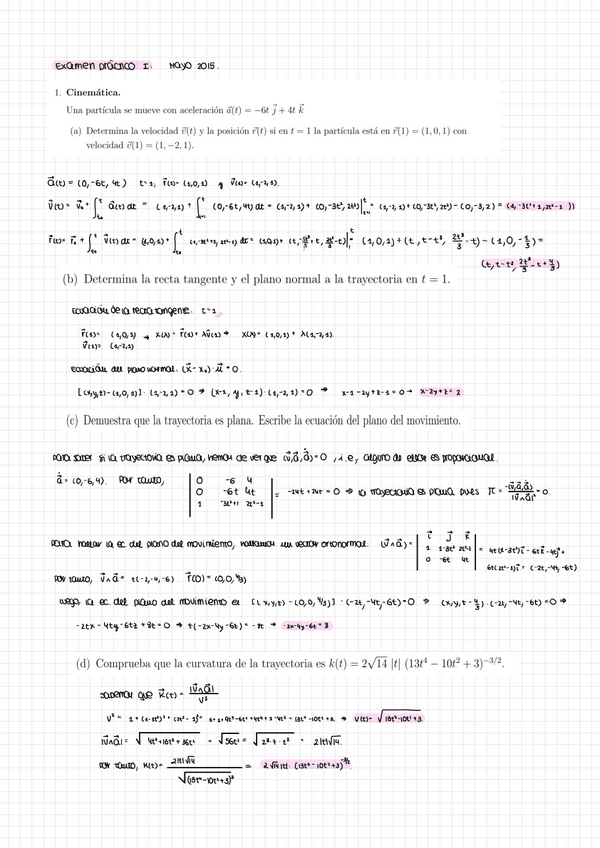 Examen práctico I. Mayo 2015.
1. Cinemática.
Una partícula se mueve con aceleración a⃗(t) = −6t j⃗ + 4t k⃗
(a) Determina la velocidad v⃗(t) y la posición r⃗(t) si en t = 1 la partícula está en r⃗(1) = (1, 0, 1) con
velocidad v⃗(1) = (1, −2, 1).
a⃗(t) = (0, -6t, 4t) t=1, r⃗(1) = (1,0,1) y v⃗(1) = (1,-2,1).
v⃗(t) = v⃗₀ + ∫ₜ₀ᵗ a⃗(t) dt = (1,-2,1) + ∫ₜ₌₁ᵗ (0,-6t,4t) dt = (1,-2,1) + (0,-3t²,2t²)|ₜ₌₁ᵗ = (1,-2,1) + (0,-3t²,2t²) - (0,-3,2) = (1,-3t²+1,2t²-1))
r⃗(t) = r⃗₀ + ∫ₜ₀ᵗ v⃗(t) dt = (1,0,1) + ∫ₜ₌₁ᵗ (1,-3t²+1,2t²-1) dt = (1,0,1) + (t, -3t³/3+t, 2t³/3-t)|₁ᵗ = (1,0,1) + (t, t-t³, 2t³/3-t) - (1,0,-1/3) =
(t, t-t³, 2t³/3-t+4/3)
(b) Determina la recta tangente y el plano normal a la trayectoria en t = 1.
Ecuación de la recta tangente: t=1
r⃗(1) = (1,0,1) → x(λ) = r⃗(1) + λv⃗(1) → x(λ) = (1,0,1) + λ(1,-2,1).
v⃗(1) = (1,-2,1)
Ecuación del plano normal: (x⃗ - x₀)·u⃗ = 0.
[(x,y,z) - (1,0,1)]·(1,-2,1) = 0 → (x-1, y, z-1)·(1,-2,1) = 0 → x-1-2y+z-1 = 0 → x-2y+z = 2
(c) Demuestra que la trayectoria es plana. Escribe la ecuación del plano del movimiento.
Para saber si la trayectoria es plana, hemos de ver que (v⃗,a⃗,ȧ⃗) = 0, i.e, alguno de ellos es proporcional.
ȧ⃗ = (0,-6,4). Por tanto, | 0 -6 4 | 0 -6t 4t | 1 -3t²+1 2t²-1 | = -24t+24t = 0 ⇒ la trayectoria es plana pues π = -(v⃗,a⃗,ȧ⃗)/|v⃗∧a⃗|² = 0.
Para hallar la ec. del plano del movimiento, hallamos un vector ortonormal: (v⃗∧a⃗) = | i⃗ j⃗ k⃗ | 1 1-3t² 2t²-1 | 0 -6t 4t | = 4t(1-3t²)i⃗ - 6tk⃗ - 4tj⃗ +
6t(2t²-1)i⃗ = (-2t,-4t,-6t)
Por tanto, v⃗∧a⃗ = t(-2,-4,-6) r⃗(0) = (0,0,4/3)
Luego, la ec. del plano del movimiento es [(x,y,z) - (0,0,4/3)]·(-2t,-4t,-6t) = 0 ⇒ (x,y,z-4/3)·(-2t,-4t,-6t) = 0 ⇒
-2tx-4ty-6tz+8t = 0 → t(-2x-4y-6z) = -8t → -2x-4y-6z = 8
(d) Comprueba que la curvatura de la trayectoria es k(t) = 2√14 |t| (13t⁴ − 10t² + 3)^(−3/2).
Sabemos que k(t) = |v⃗∧a⃗|/v³
v² = 1 + (1-3t²)² + (2t²-1)² = 1+1+9t⁴-6t²+4t⁴+1-4t² = 13t⁴-10t²+3. → v(t) = √(13t⁴-10t²+3)
|v⃗∧a⃗| = √(4t²+16t²+36t²) = √(56t²) = √(2³·7·t²) = 2|t|√14.
Por tanto, k(t) = 2|t|√14/√((13t⁴-10t²+3)³) = 2√14 |t|·(13t⁴-10t²+3)^(-3/2)